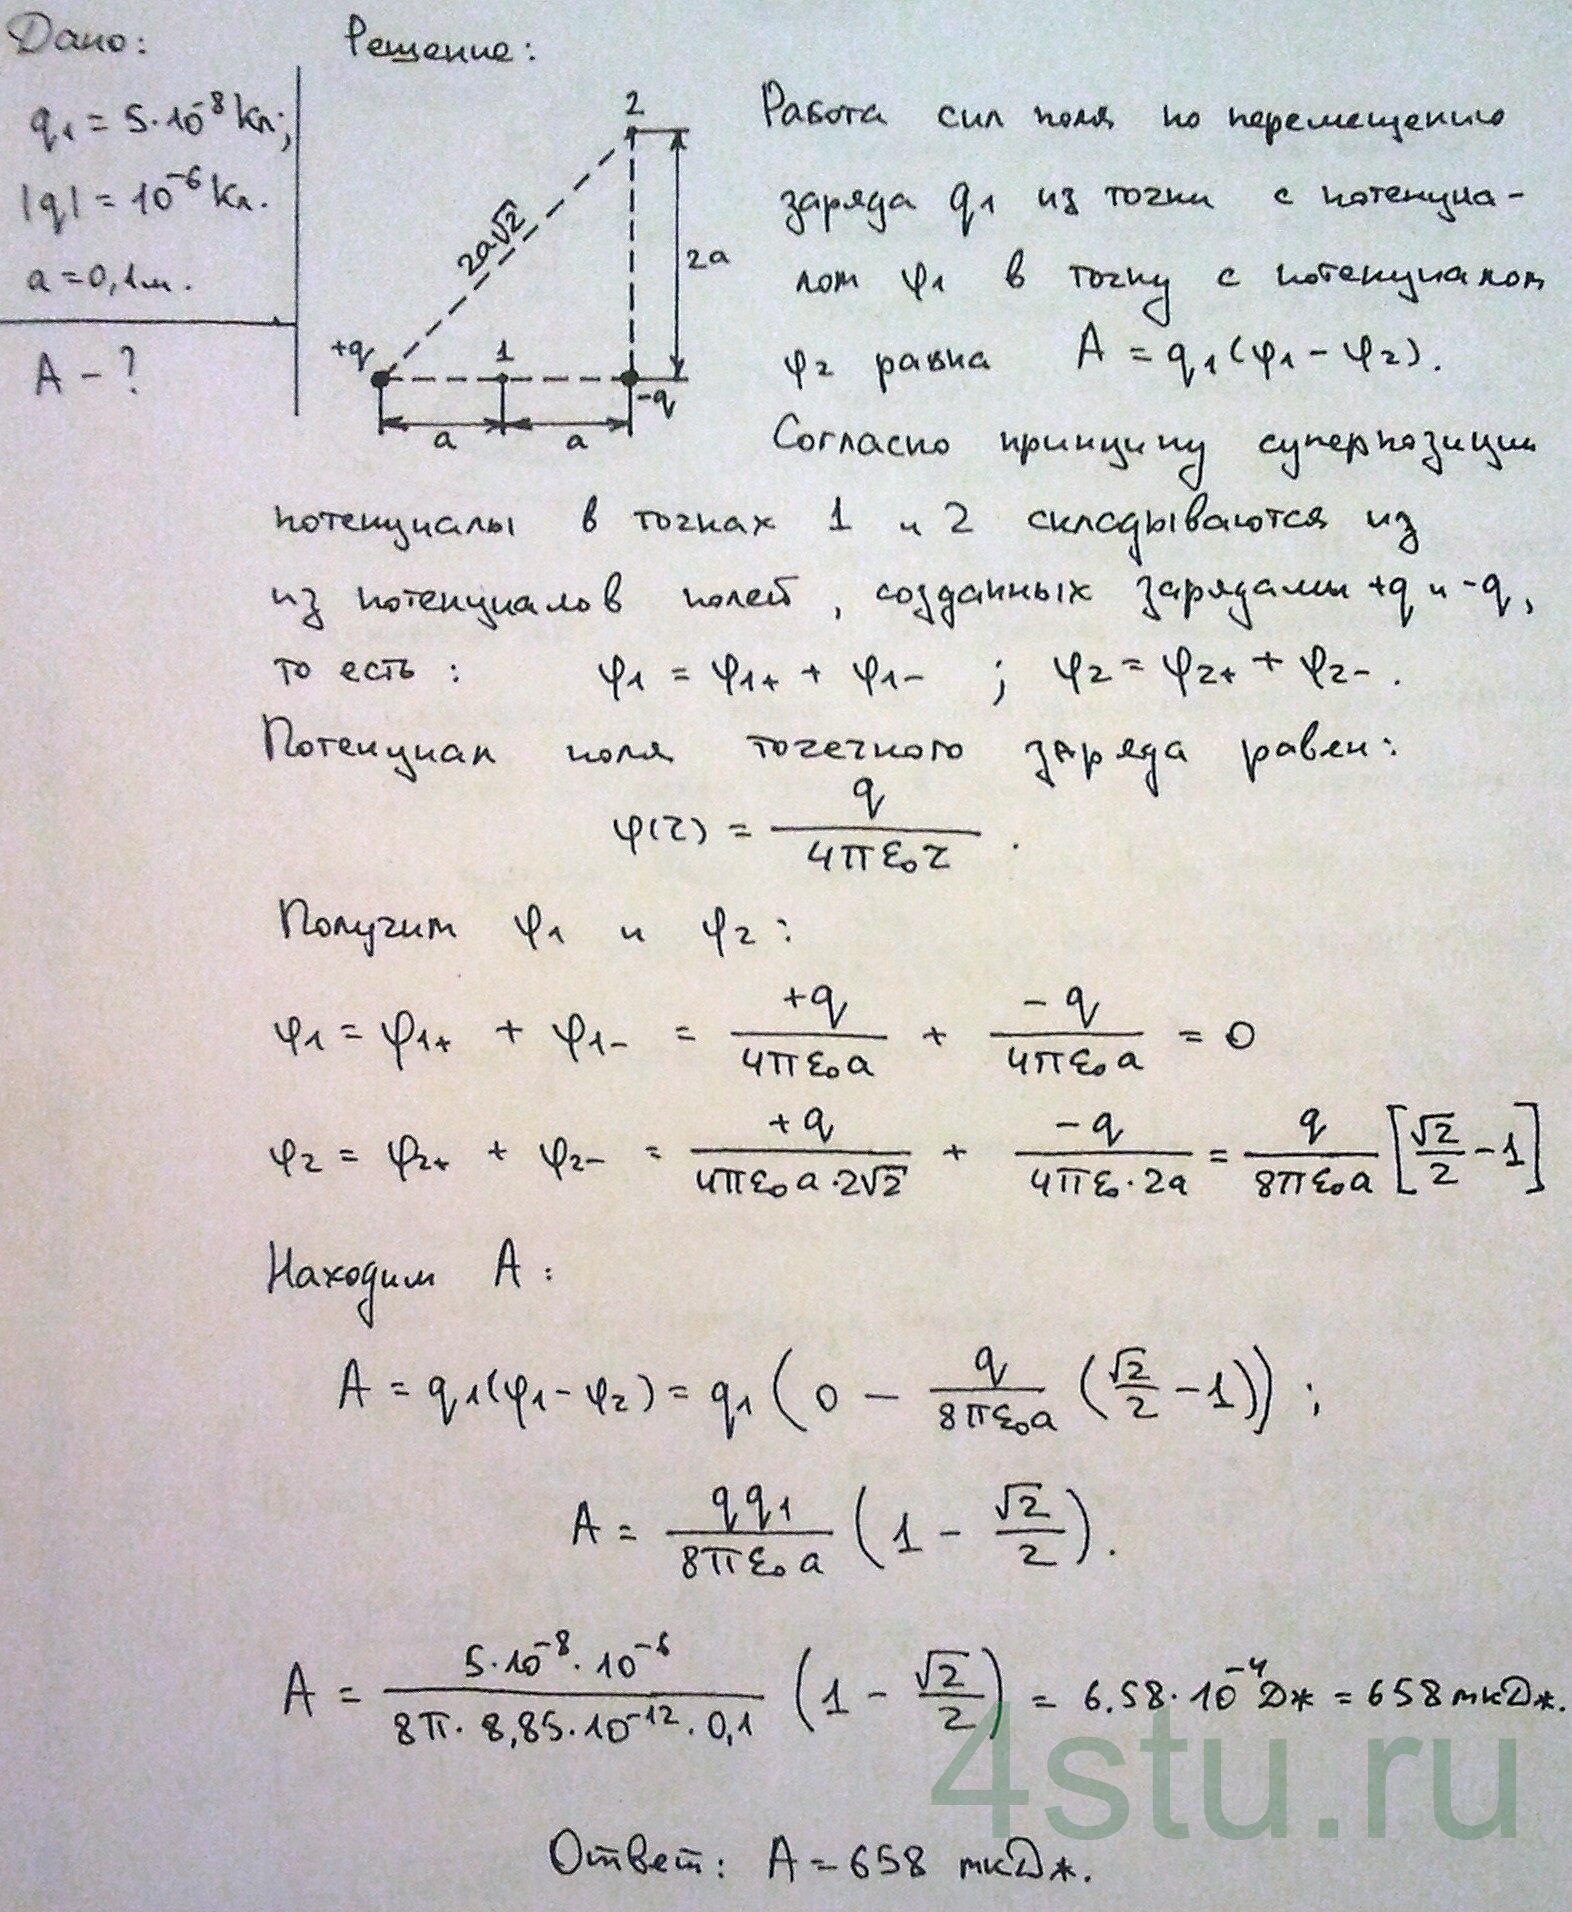 Дано:
q₁ = 5·10⁻⁸ Кл;
|q| = 10⁻⁶ Кл.
a = 0,1 м.
A – ?
Решение:
2
2a√2
2a
+q
1
-q
a
a
Работа сил поля по перемещению
заряда q₁ из точки с потенциа-
лом φ₁ в точку с потенциалом
φ₂ равна A = q₁(φ₁ – φ₂).
Согласно принципу суперпозиции
потенциалы в точках 1 и 2 складываются из
из потенциалов полей, созданных зарядами +q и -q,
то есть: φ₁ = φ₁₊ + φ₁₋ ; φ₂ = φ₂₊ + φ₂₋.
Потенциал поля точечного заряда равен:
φ(r) = q / (4πε₀r).
Получим φ₁ и φ₂:
φ₁ = φ₁₊ + φ₁₋ = +q / (4πε₀a) + -q / (4πε₀a) = 0
φ₂ = φ₂₊ + φ₂₋ = +q / (4πε₀a·2√2) + -q / (4πε₀·2a) = q / (8πε₀a) [√2/2 – 1]
Находим A:
A = q₁(φ₁ – φ₂) = q₁(0 – q / (8πε₀a) (√2/2 – 1));
A = qq₁ / (8πε₀a) (1 – √2/2).
A = 5·10⁻⁸·10⁻⁶ / (8π·8,85·10⁻¹²·0,1) (1 – √2/2) = 6.58·10⁻⁴ Дж = 658 мкДж.
4stu.ru
Ответ: A = 658 мкДж.